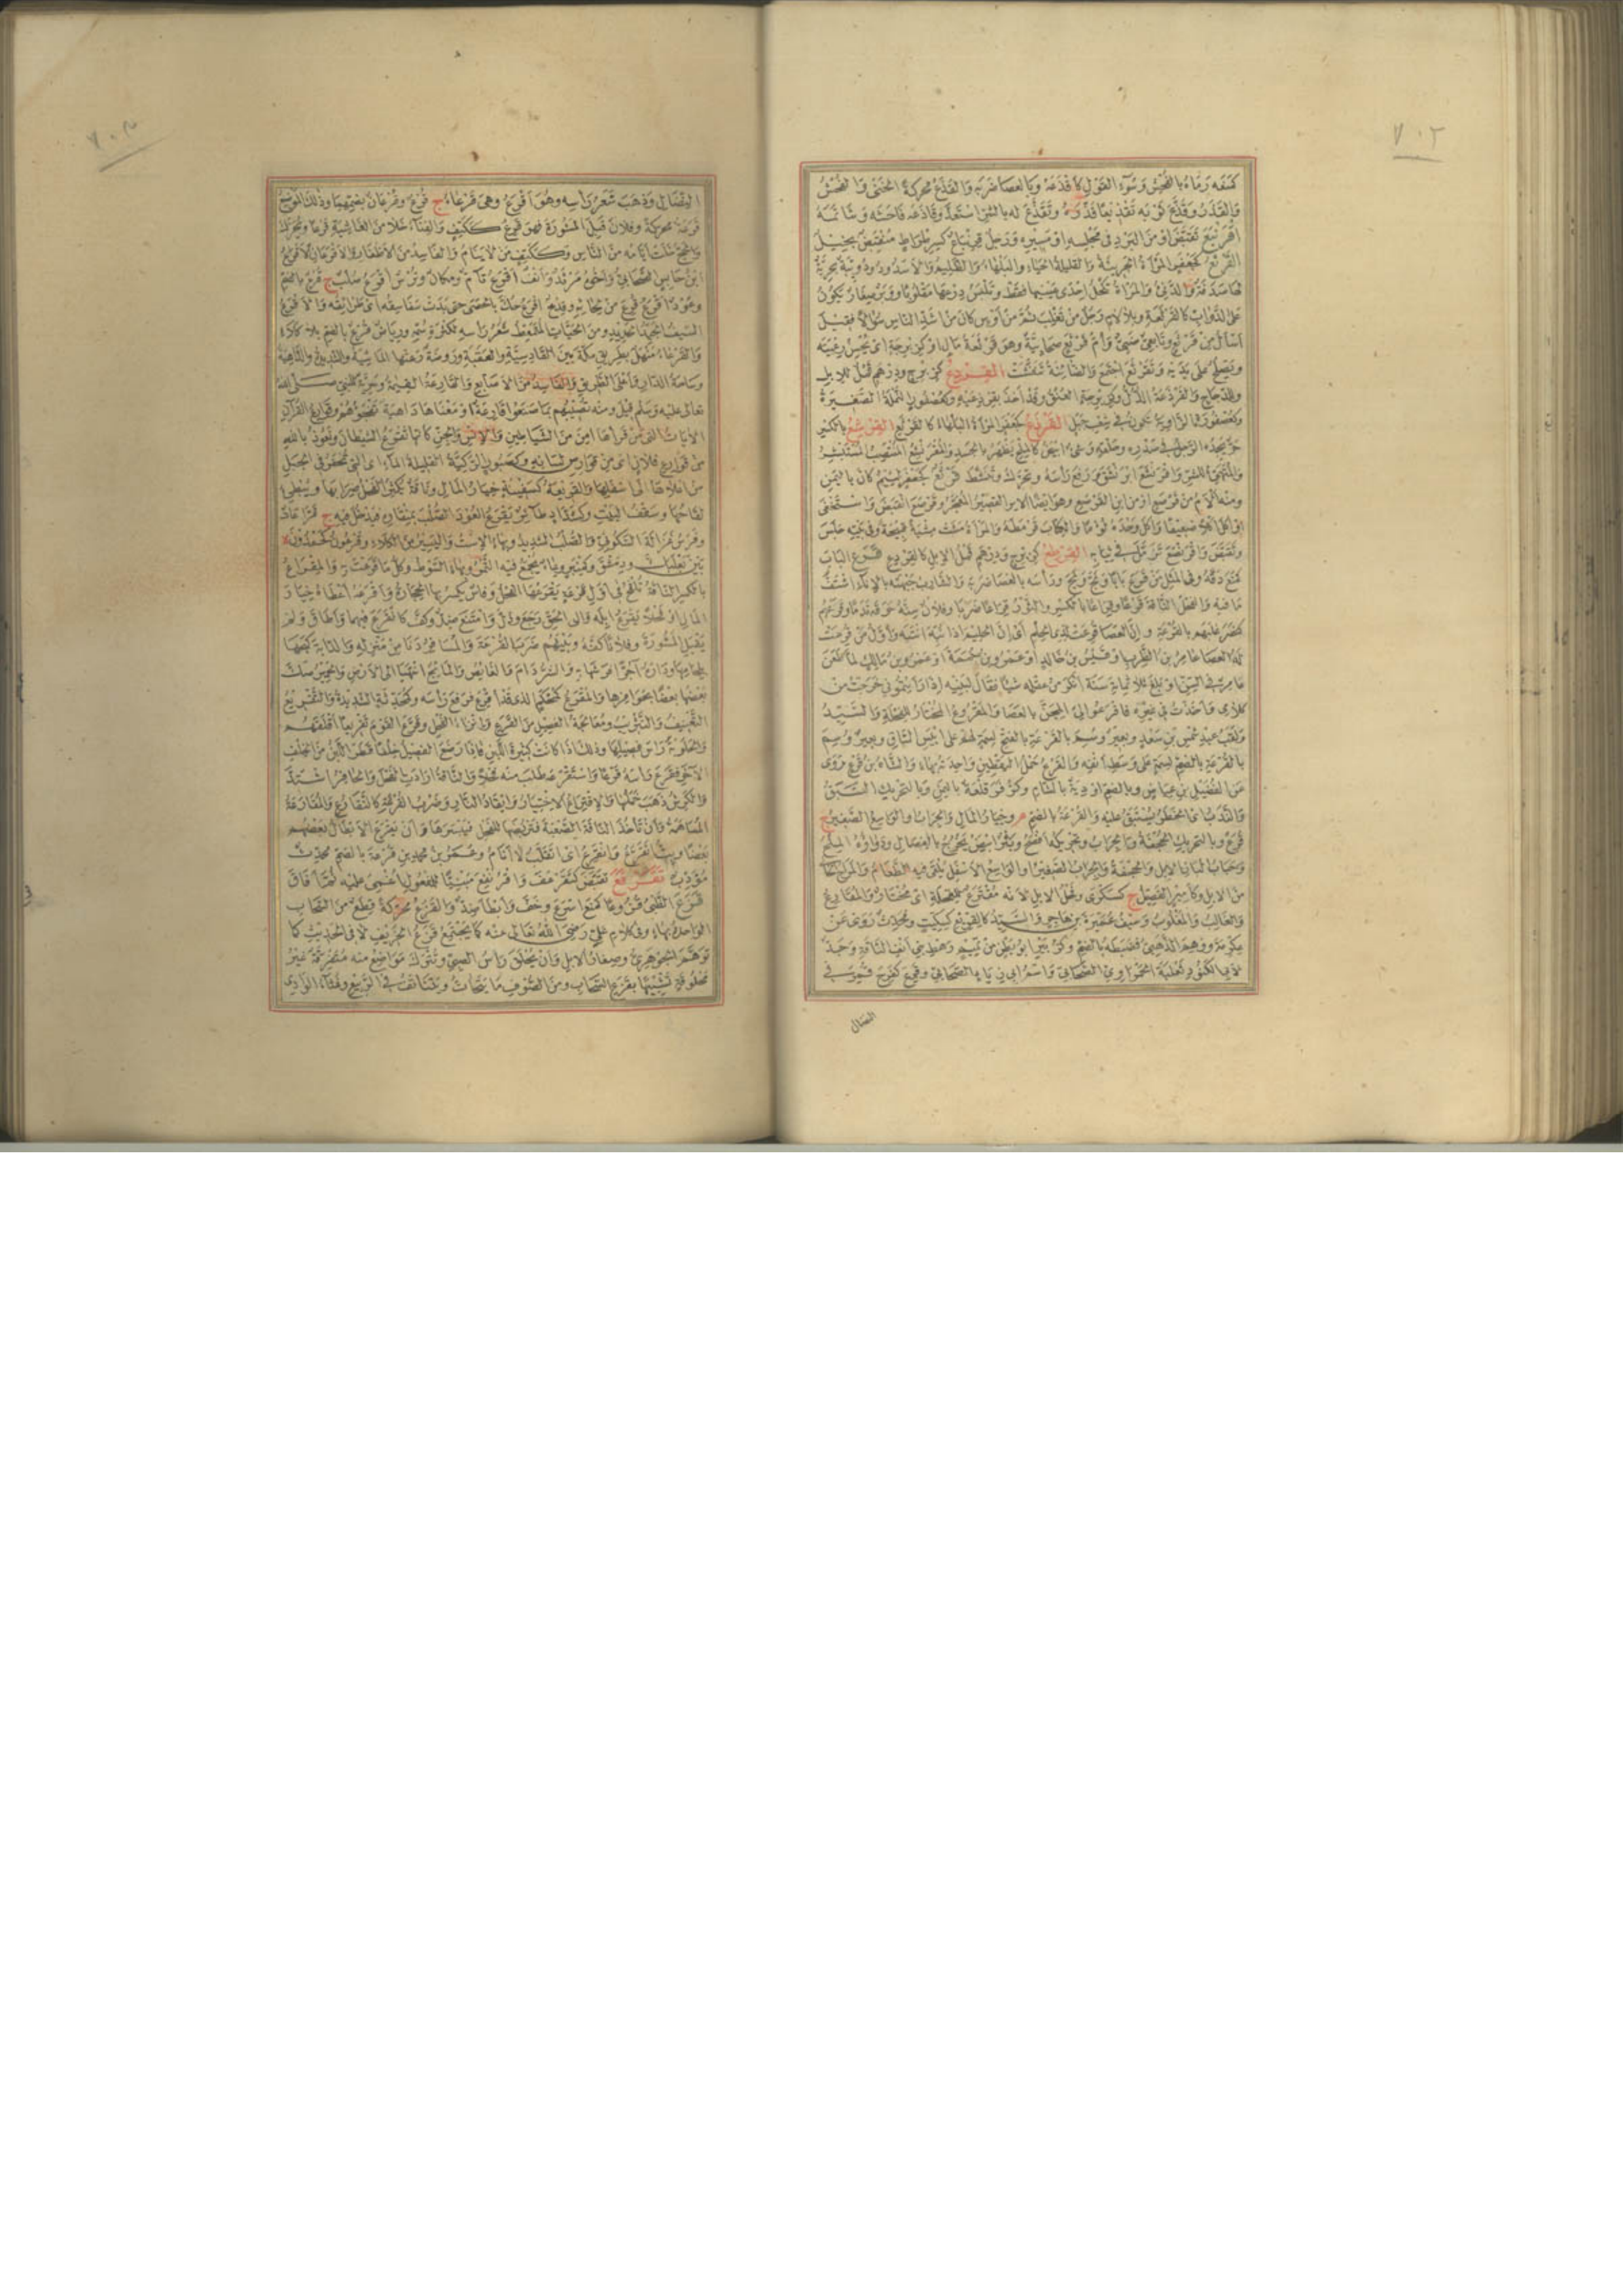 ٧٠٢
كمنعه رماه بالفحش وسوء القول كأقذعه وبالعصا ضربه والقذع محركة الخنى والفحش
والقذر وقذع ثوبه تقذيعا قذره وتقذع له بالشر استعد وقاذعه فاحشه وشاتمه
اقرنبع تقبض او من البرد فى مجلسه او مسيره ورجل قرنباع كسرطراط منقبض بخيل
القرثع كجعفر المرأة الجريئة القليلة الحياء والبلهاء والظليم والاسد ودويبة بحرية
لها صدفة والدنئ والمرأة تكحل احدى عينيها فقط وتلبس درعها مقلوبا ووبر صغار يكون
على الدواب كالقرثعة وبلا لام رجل من تغلب ثم من اوس كان من اشد الناس سؤالا فقيل
اسأل من قرثع وتابعى ضبى وام قرثع صحابية وهو قرثعة مال
القردع كزبرج ودرهم قمل للابل
والدجاج والقردعة الذل
القرذع كجعفر المرأة البلهاء كالقرثع القرشع بالكسر
حر يجده الرجل فى صدره وحلقه وشئ ابيض كالملح يظهر بالجسد والمقرنشع المنتصب المستبشر
ومنه ألأم من قرصع او من ابن القرصع وهو ايضا الاير القصير المعجر وقرصع انقبض واستخفى
او اكل اكلا ضعيفا واكل وحده لؤما والكتاب قرمطه والمرأة مشت مشية قبيحة وفى بيته جلس
وتقبض واقرنصع تزمل فى ثيابه القرطع كزبرج ودرهم قمل الابل كالقردع قرع الباب
كمنع دقه وفى المثل من قرع بابا ولج ولج ورأسه بالعصا ضربه والشارب جبهته بالاناء اشتف
ما فيه والفحل الناقة قرعا وقراعا بالكسر والثور قراعا ضربا وفلان سنه حرقه ندما وقرعهم
كنصر غلبهم بالقرعة وان العصا قرعت لذى الحلم اى ان الحليم اذا نبه انتبه واول من قرعت
له العصا عامر بن الظرب او قيس بن خالد او عمرو بن حممة او عمرو بن مالك لما طعن
عامر فى السن او بلغ ثلاثمائة سنة انكر من عقله شيئا فقال لبنيه اذا رأيتمونى خرجت من
كلامى واخذت فى غيره فاقرعوا لى المجن بالعصا والمقروع المختار للفحلة والسيد
ولقب عبد شمس بن سعد وبعير وسم بالقرعة بالفتح لسمة لهم على ايبس الساق وبعير وسم
بالقرعة بالضم لسمة على وسط انفه والقرع حمل اليقطين واحدته بهاء والشاه بن قرع روى
عن الفضيل بن عياض وبالضم اودية بالشام وكزفر قلعة باليمن وبالتحريك السبق
والندب اى الخطر يستبق عليه والقرعة بالضم م وخيار المال والجراب او الواسع الصغير ج
قرع وبالتحريك الحجفة والجراب وتحريكه افصح وبثر ابيض يخرج بالفصال ودواؤه الملح
وحباب البان الابل والحجفة والجراب الصغير او الواسع الاسفل يلقى فيه الطعام والمراح الخالى
من الابل وكامير الفصيل ج كسكرى وفحل الابل لانه مقترع للفحلة اى مختار والمقارع
والغالب والمغلوب وسيف عميرة بن هاجر والسيد كالقريع كسكيت ومحدث روى عن
عكرمة ووهم الذهبى فضبطه بالضم وكزبير ابو بطن من تميم رهط بنى انف الناقة وجد
لابى الكنود ثعلبة الحمراوى الصحابى واسم ابى زياد الصحابى وقرع كفرح قمر فى
النضال
٧٠٣
النضال وذهب شعر رأسه وهو اقرع وهى قرعاء ج قرع وقرعان بضمهما وذلك الموضع
قرعة محركة وفلان قبل المشورة فهو قرع ككتف والفناء خلا من الغاشية قرعا ويحرك
والحج خلت ايامه من الناس وككتف من لا ينام والفاسد من الاظفار والاقرعان الاقرع
ابن حابس الصحابى واخوه مرثد والف اقرع تام ومكان وترس اقرع صلب ج قرع بالضم
وعود اقرع قرع من لحائه وقدح اقرع حك بالحصى حتى بدت سفاسقه اى طرائقه والاقرع
السيف الجيد الحديد ومن الحيات المتمعط شعر رأسه لكثرة سمه ورياض قرع بالضم بلا كلاء
والقرعاء منهل بطريق مكة بين القادسية والعقبة وروضة رعتها الماشية والشديدة والداهية
وساحة الدار واعلى الطريق والفاسدة من الاصابع والقارعة القيامة وسرية للنبى صلى الله
تعالى عليه وسلم قيل ومنه تصيبهم بما صنعوا قارعة او معناها داهية تفجؤهم وقوارع القرآن
الآيات التى من قرأها امن من الشياطين والانس والجن كانها تقرع الشيطان ونعوذ بالله
من قوارع فلان اى من قوارص لسانه وكصبور الركية القليلة الماء او التى تحفر فى الجبل
من اعلاها الى اسفلها والقريعة كسفينة خيار المال وناقة يكثر الفحل ضرابها ويبطئ
لقاحها وسقف البيت وكشداد طائر يقرع العود الصلب بمنقاره فيدخل فيه ج قراعات
وفرس غزالة السكونى والصلب الشديد وبهاء الاست واليسير من الكلاء وقرعون كحمدون ة
بين بعلبك ودمشق وكمنبر وعاء يجمع فيه التمر وبهاء السوط وكل ما قرعت به والمقراع
بالكسر الناقة تلقح فى اول قرعة يقرعها الفحل وفأس يكسر بها الحجارة واقرعه اعطاه خيار
المال او فحلا يقرع ابله والى الحق رجع وذل وامتنع ضد وكف كانقرع فيهما واطاق ولم
يقبل المشورة وفلانا كفه وبينهم ضرب القرعة والمسافر دنا من منزله والدابة كبحها
بلجامها وداره آجرا فرشها به والشر دام والغائص والمائح انتهيا الى الارض والحمير صك
بعضها بعضا بحوافرها والمقرع كمحكم الذى قد اقرع فرفع رأسه وكمحدثة الشديدة والتقريع
التعنيف والتثريب ومعالجة الفصيل من القرع وانزاء الفحل وقرع القوم تقريعا اقلقهم
والحلوبة رأس فصيلها وذلك اذا كانت كثيرة اللبن فاذا رضع الفصيل خلفا قطر اللبن من الخلف
الآخر فقرع رأسه قرعا واستقرعه طلب منه فحلا والناقة ارادت الفحل والحافر اشتد
والكرش ذهب خملها والاقتراع الاختيار وايقاد النار وضرب القرعة كالتقارع والمقارعة
المساهمة وان تأخذ الناقة الصعبة فتربضها للفحل فيبسرها وان يقرع الابطال بعضهم
بعضا وبت اتقرع وانقرع اى اتقلب لا انام وعمر بن محمد بن قرعة بالضم محدث
مؤدب تقرفع تقبض كتقرعف واقرنفع مبنيا للمفعول اغمى عليه ثم افاق
قزع الظبى قزوعا كمنع اسرع وخف وابطأ ضد والقزع محركة قطع من السحاب
الواحدة بهاء وفى كلام على رضى الله تعالى عنه كما يجتمع قزع الخريف لا فى الحديث كما
توهم الجوهرى وصغار الابل وان يحلق رأس الصبى وتترك مواضع منه متفرقة غير
محلوقة تشبيها بقزع السحاب ومن الصوف ما يتحات ويتناتف فى الربيع وغثاء الوادى